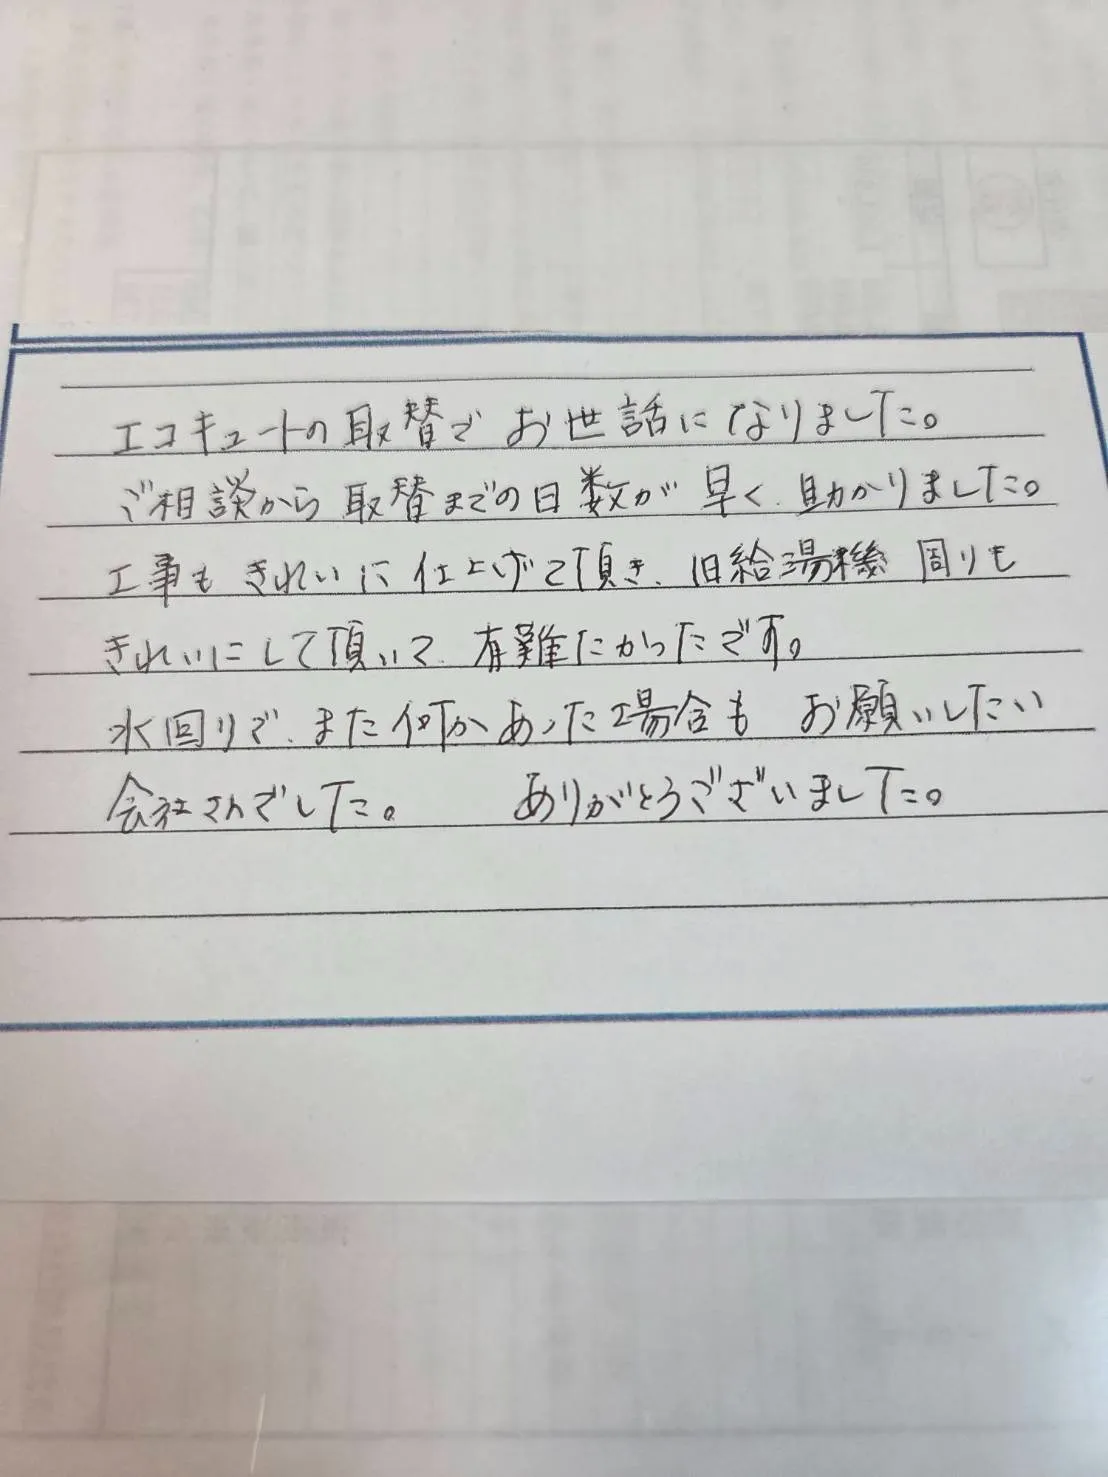 エコキュートの取替で お世話になりました。
ご相談から取替までの日数が 早く、助かりました。
工事も きれいに 仕上げて頂き、旧給湯機 周りも
きれいにして頂いて、有難たかったです。
水回りで、また何かあった場合も お願いしたい
会社さんでした。 ありがとうございました。